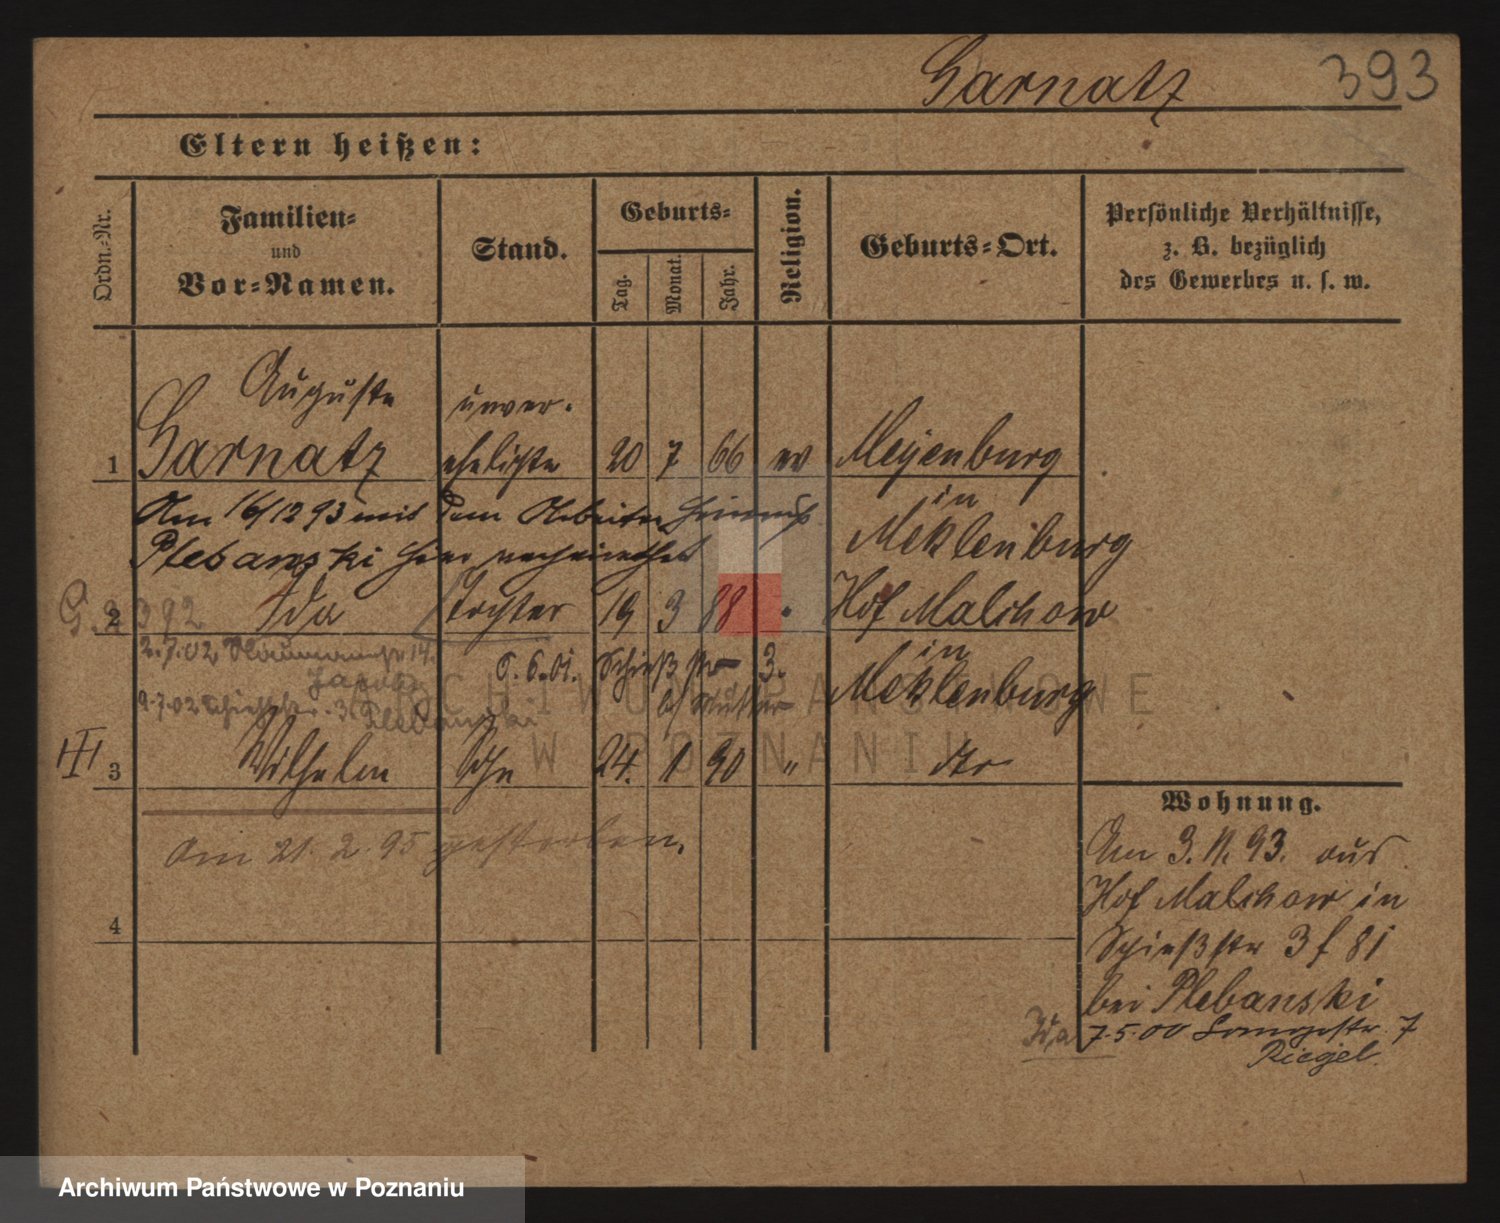 Garnatz 393
Eltern heißen:
Ordn.-Nr.
Familien-
und
Vor-Namen.
Stand.
Geburts-
Tag.
Monat.
Jahr.
Religion.
Geburts-Ort.
Persönliche Verhältnisse,
z. B. bezüglich
des Gewerbes u. s. w.
Auguste unver-
1 Garnatz ehelichte 20 7 66 ev Meyenburg
in
Am 16/12 93 mit dem Arbeiter Heinrich
Meklenburg
Plebanski hier verheirathet
G. 392
2 Ida Tochter 19 3 88 " Hof Malchow
in
2.7.02 Naumannstr 14.
6.6.01. Schießstr 3.
Jakob
b/ Mutter
Meklenburg
9.7.02 Schießstr. 3 Plebanski
III
3 Wilhelm Sohn 24. 1 90 " dto
Am 21. 2. 95 gestorben.
4
Wohnung.
Am 3. 11. 93. aus
Hof Malchow in
Schießstr 3 f 81
bei Plebanski
Ida 7.5.00 Langestr. 7
Riegel.
ARCHIWUM PAŃSTWOWE
W POZNANIU
Archiwum Państwowe w Poznaniu